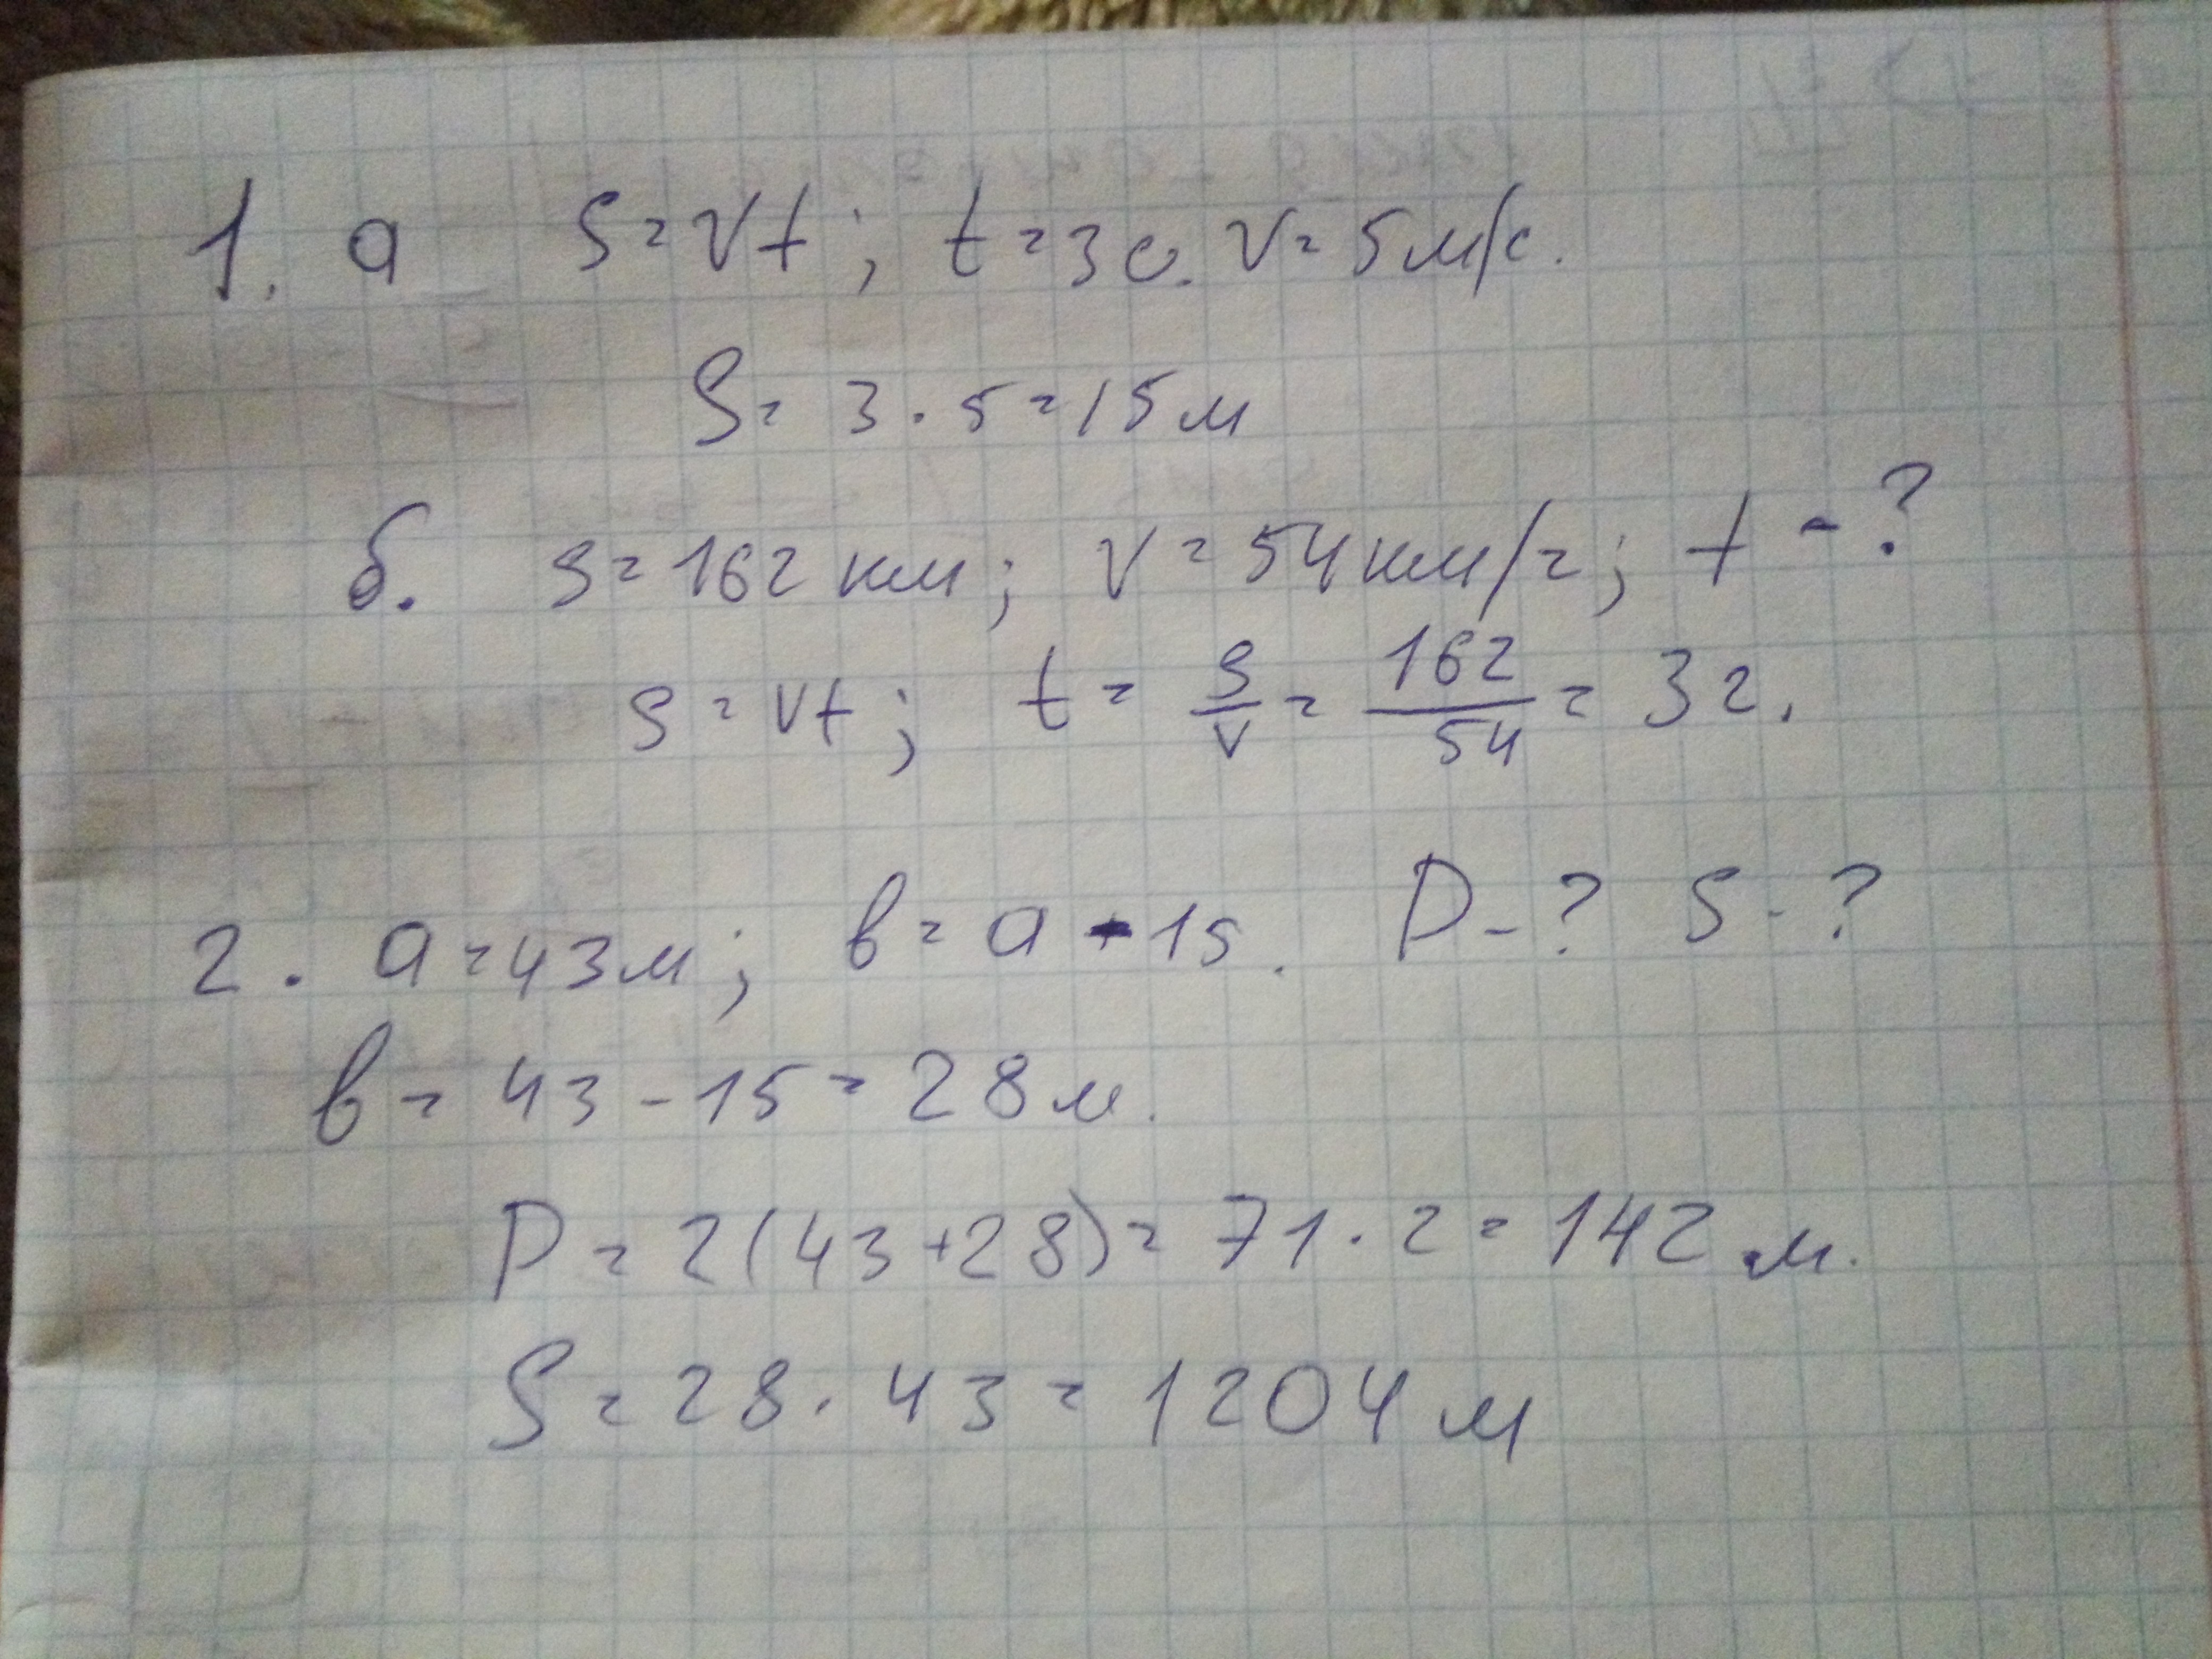 1. а S = Vt; t = 3 с. V = 5 м/с.
S = 3 · 5 = 15 м
б. S = 162 км; V = 54 км/г; t - ?
S = Vt; t = S/V = 162/54 = 3 г.
2. а = 43 м; в = а - 15. P - ? S - ?
в = 43 - 15 = 28 м.
P = 2(43 + 28) = 71 · 2 = 142 м.
S = 28 · 43 = 1204 м